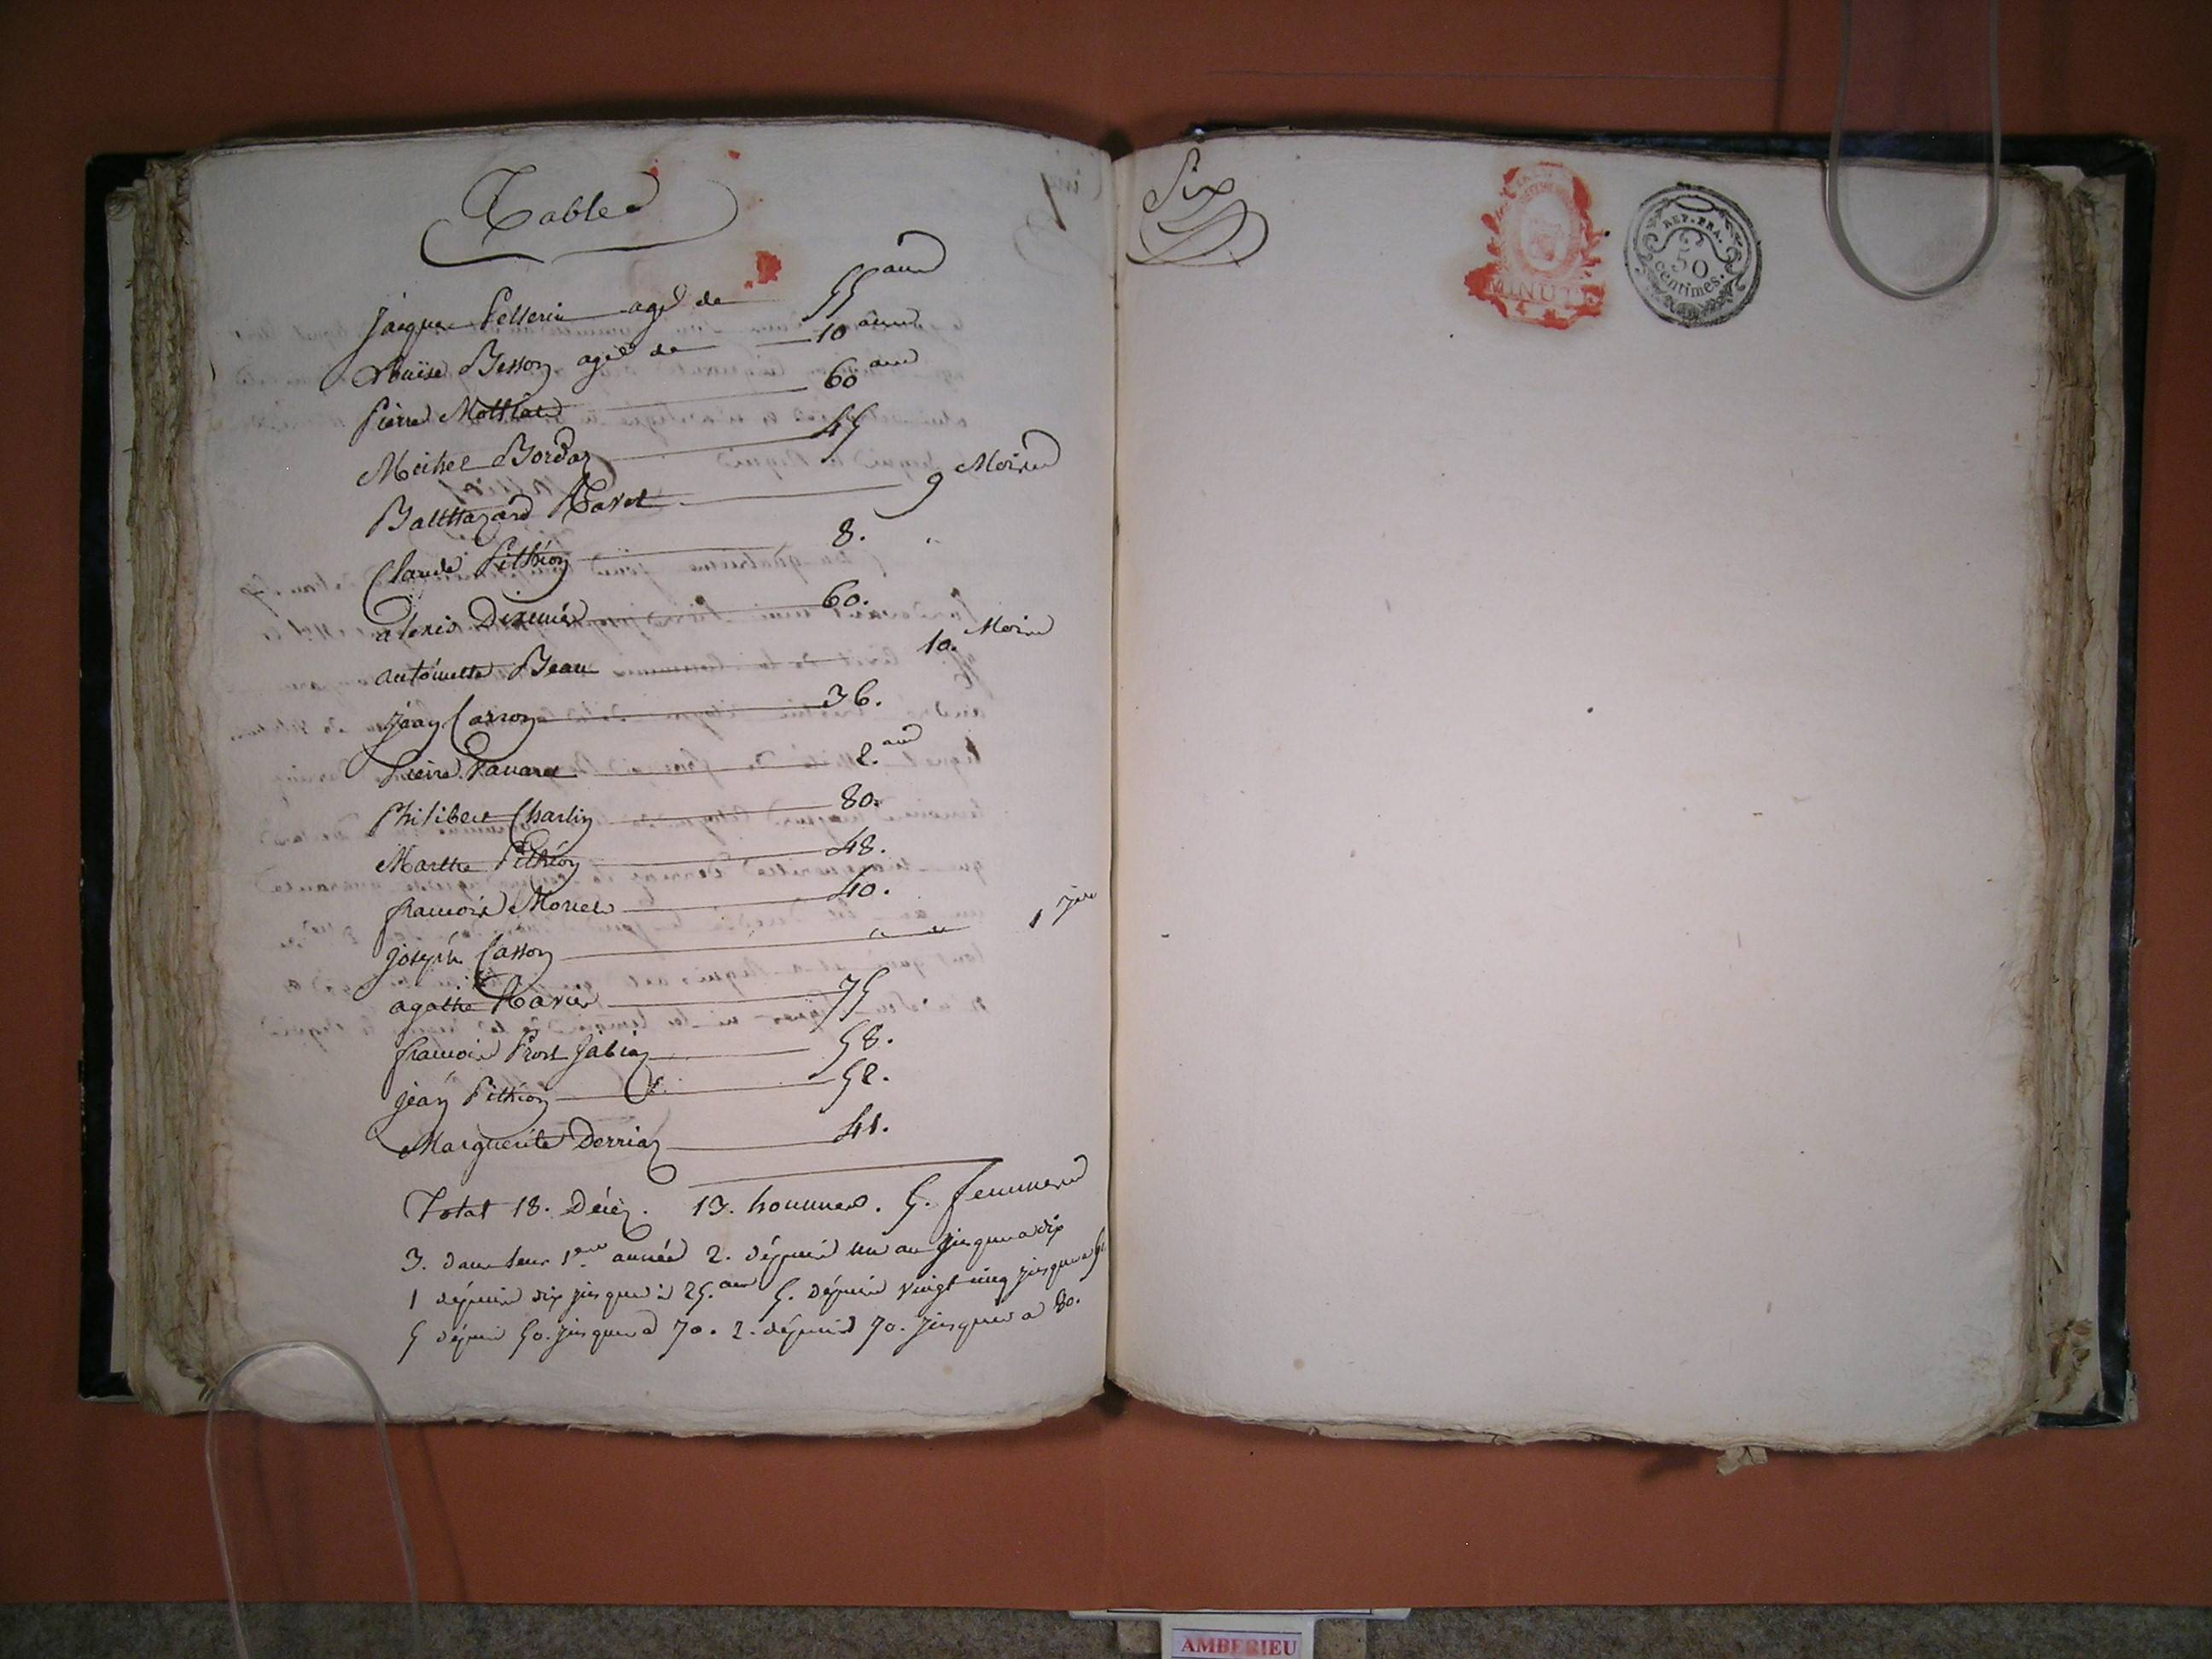 Table
Jacque Pellerin agé de 55 ans
Louise Besson agée de 10 ans
Pierre 60 ans
Michel Bordaz 45
Balthazard Ravet 9 Mois
Claude Pithion 8.
alexis 60.
antoinette Beau 10. Mois
jean Carron 36.
Pierre 2. ans
Philibert Charlin 80.
Marthe Pithion 48.
francois Morel 40.
joseph Casson 1 jour
agathe 75
francois Prost 58.
jean Pithion 52.
Marguerite Derriaz 41.
Total 18. Décéz. 13. hommes. 5. femmes
3. dans leur 1ere année 2. dépuis un an jusques a dix
1 dépuis dix jusques a 25. ans 5. dépuis vingt cinq jusques a 50
5 dépuis 50. jusques a 70. 2. dépuis 70. jusques a 80.
Six
MINUTE
4
REP. FRA.
50
centimes.
AMBERIEU